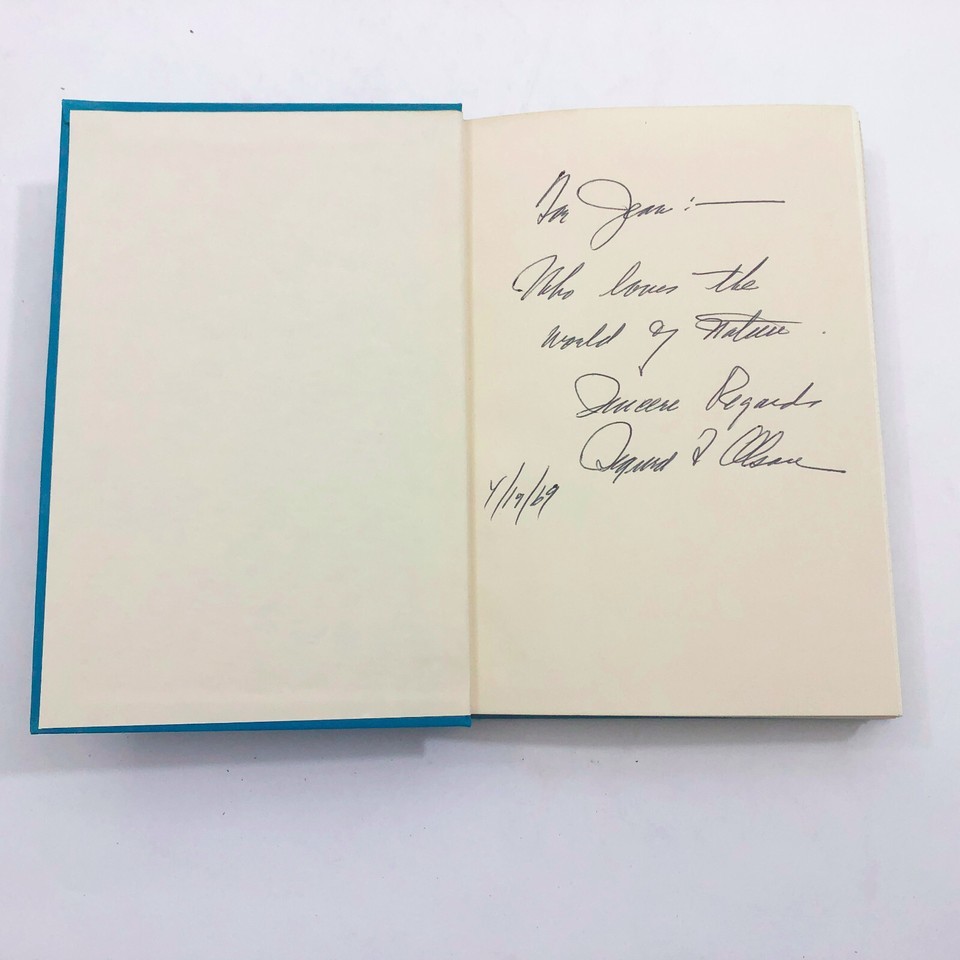 For Jean :—
Who loves the
World of Nature.
Sincere Regards
Sigurd F Olson
4/19/69